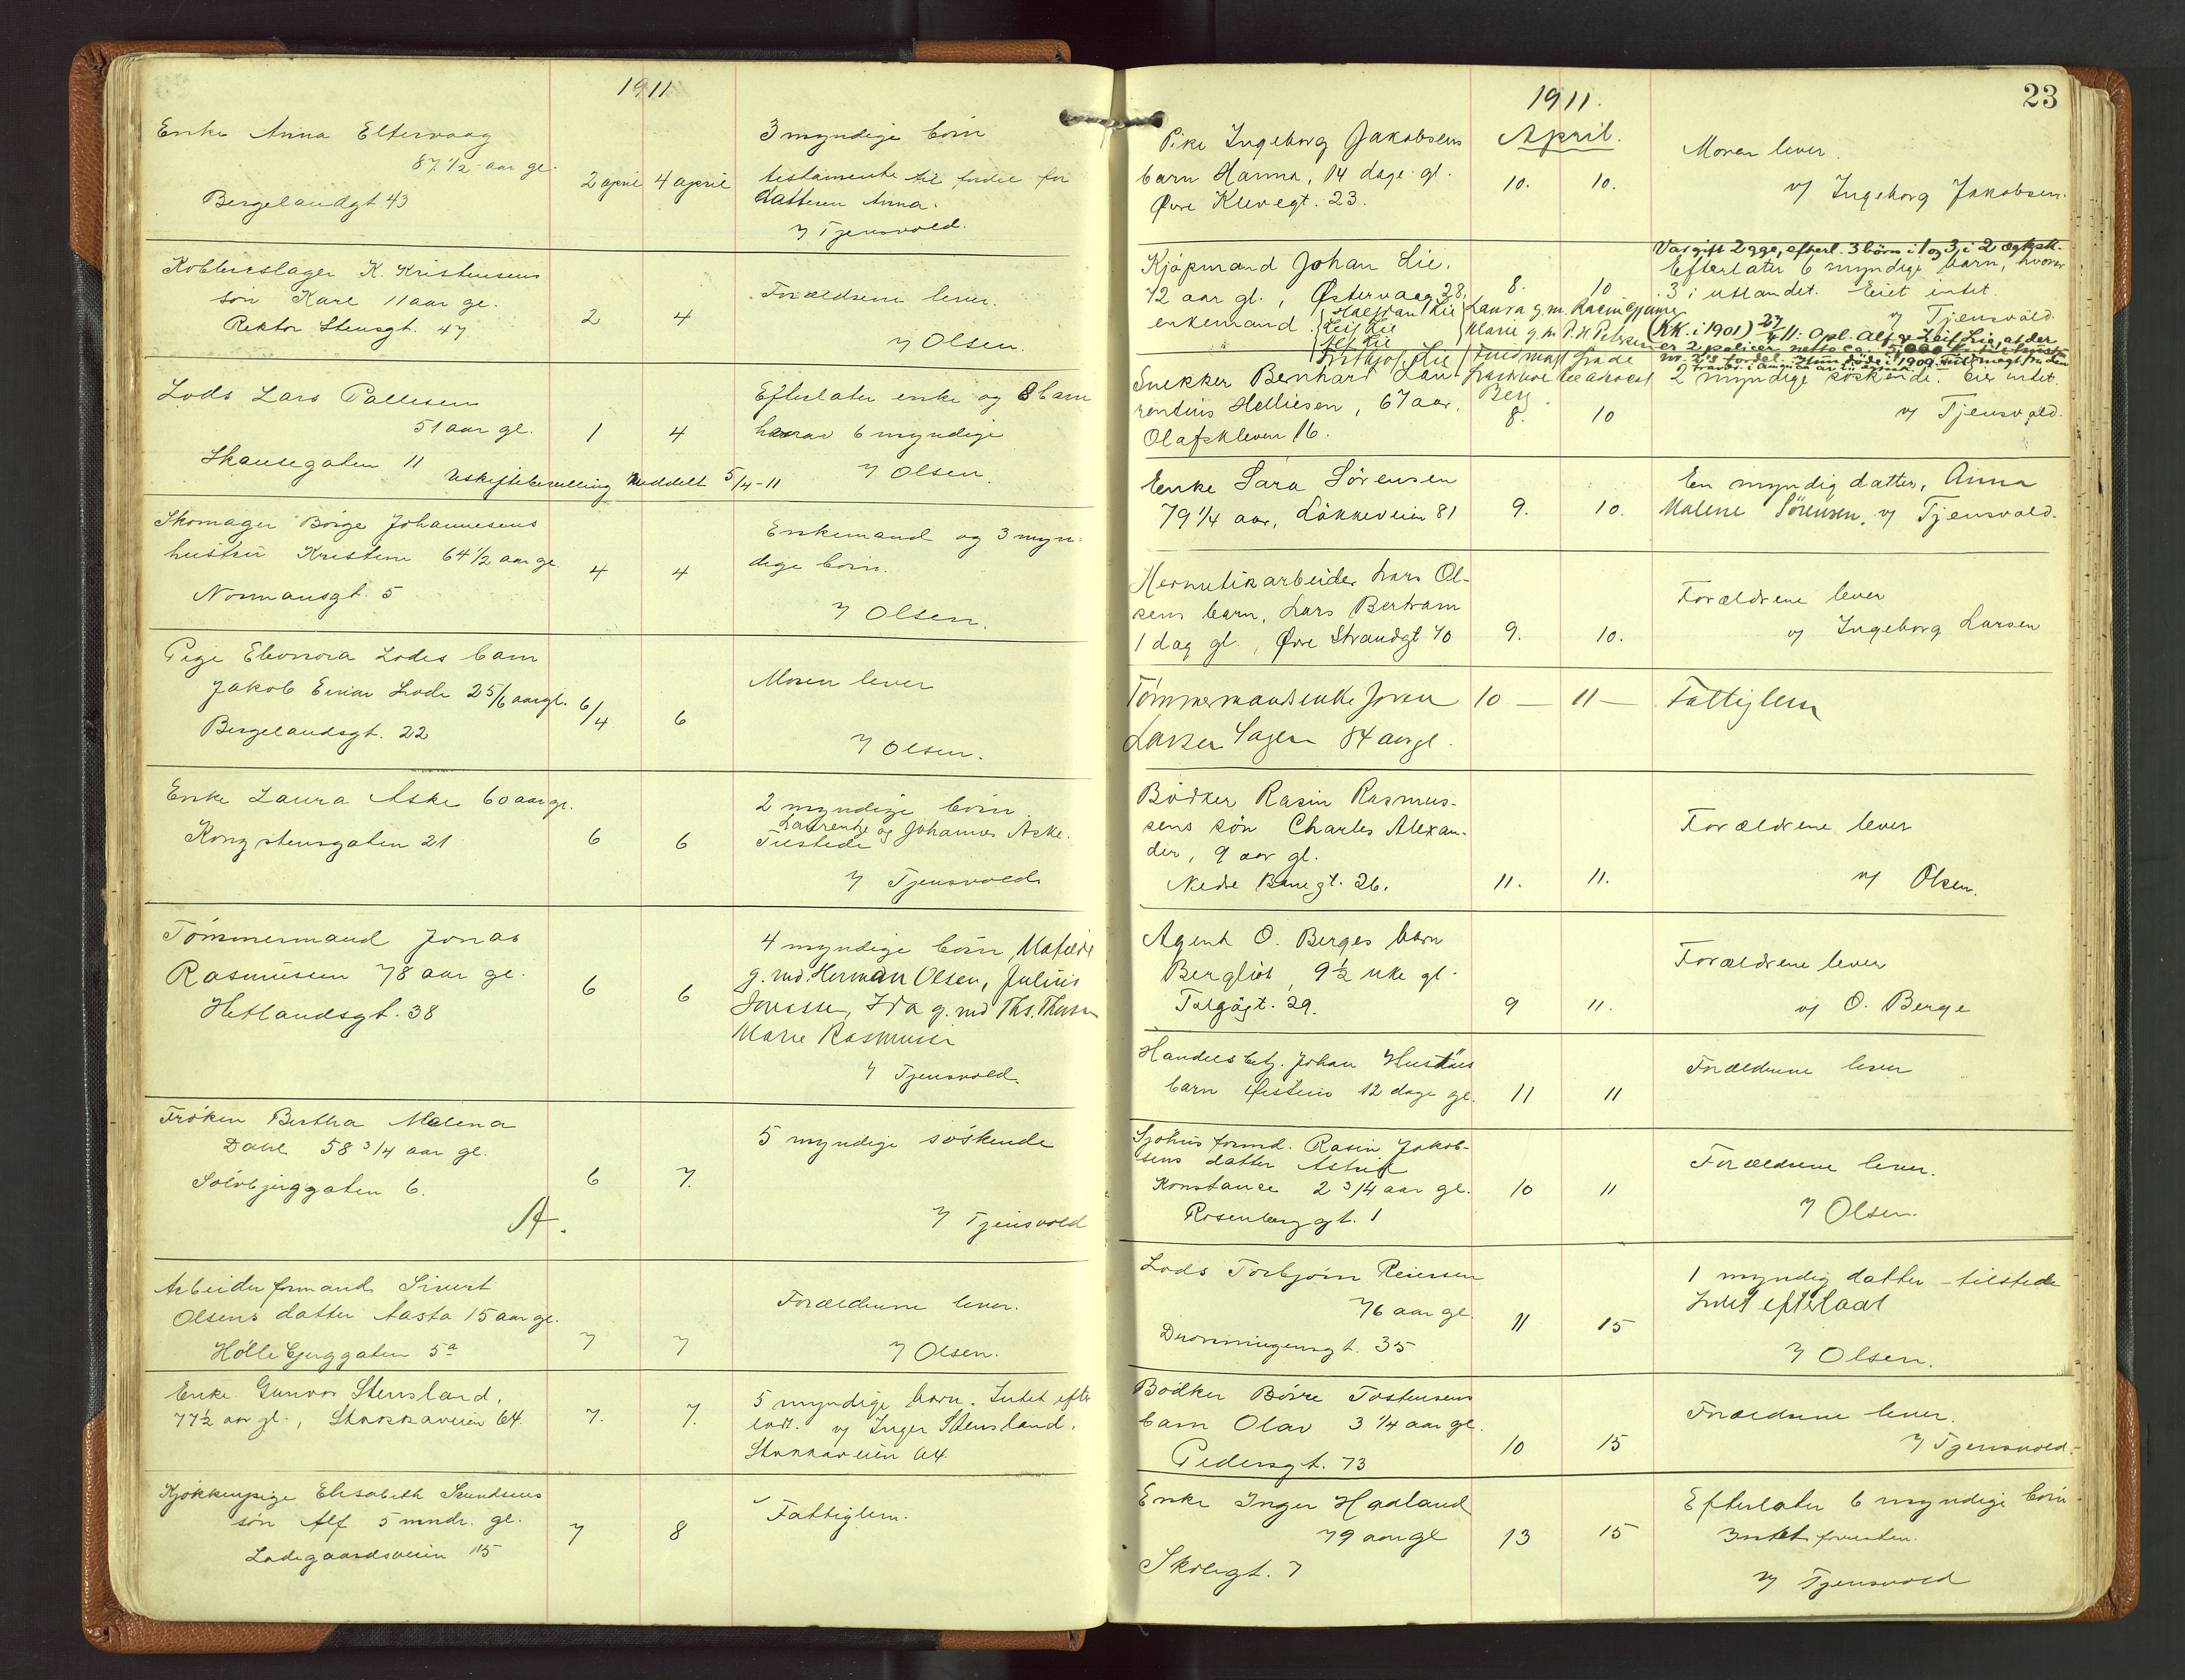 1911
Enke Anna Eltervaag
87 1/2 aar gl.
Bergelandgt 43
2 april 4 april
3 myndige börn
testamente til fordel for
datteren Anna.
v/ Tjensvold.
Kobberslager K. Kristensens
sön Karl 11 aar gl.
Rektor Stensgt. 47
2 4
Forældrene lever.
v/ Olsen.
Lods Lars Pallesen
51 aar gl.
Skansegaten 11
1 4
Efterlater enke og 8 barn
hvorav 6 myndige
v/ Olsen.
Uskiftebevilling meddelt 5/4-11
Skomager Börge Johannesens
hustru Kristine 64 1/2 aar gl.
Normansgt. 5
4 4
Enkemand og 3 myn-
dige börn.
v/ Olsen.
Pige Elenora Lodes barn
Jakob Einar Lode 2 5/6 aar gl.
Bergelandsgt. 22
6/4 6
Moren lever
v/ Olsen.
Enke Laura Aske 60 aar gl.
Kongstensgaten 21
6 6
2 myndige börn
Laurentze og Johannes Aske.
Tilstede
v/ Tjensvold
Tömmermand Jonas
Rasmussen 78 aar gl.
Hetlandsgt. 38
6 6
4 myndige börn, Matilde
g. md. Herman Olsen, Julius
Jonassen, Ida g. md Ths. Thorsen
Marie Rasmussen
v/ Tjensvold.
Fröken Bertha Malena
Dahl 58 3/4 aar gl.
Solvbjerggaten 6.
A.
6 7.
5 myndige söskende
v/ Tjensvold
Arbeiderformand Sivert
Olsens datter Aasta 15 aar gl.
Höllebjerggaten 5a
7 7
Forældrene lever.
v/ Olsen.
Enke Gunvor Stensland,
77 1/2 aar gl., Stokkaveien 64.
7. 7.
5 myndige barn. Intet efter
ladt. v/ Inger Stensland.
Stokkaveien 64.
Kjökkenpige Elisabeth Svendsens
sön Alf 5 mndr. gl.
Ladegaardsveien 115
7 8
Fattiglem.
23
1911.
April.
Pike Ingeborg Jakobsens
barn Hanna, 14 dage gl.
Øvre Klevegt. 23.
10. 10.
Moren lever.
v/ Ingeborg Jakobsen.
Kjöpmand Johan Lie.
72 aar gl., Østervaag 28.
enkemand.
8. 10
Var gift 2 gge, efterl. 3 börn i 1 og 3 i 2 egtesk.
Efterlater 6 myndige barn, hvorav
3 i utlandet. Eiet intet.
v/ Tjensvold.
Halfdan Lie
Leif Lie
Alf Lie
Fritjof Lie
Laura g.m. Rasm Gjume
Marie g.m. P. H. Petersen
(KK. i 1901) 27/4 11: Opl. Alf og Leif Lie, at der
er 2 policer
Snekker Bernhard Lau-
rentius Helliesen, 67 aar.
Olafskleven 16.
8. 10
2 myndige söskende. Eier intet.
v/ Tjensvold.
Enke Sara Sörensen
79 1/4 aar, Lökkeveien 81
9. 10.
En myndig datter, Anna
Malene Sörensen. v/ Tjensvold.
Hermetikarbeider Lars Ol-
sens barn, Lars Bertram
1 dag gl., Øvre Strandgt 70
9. 10.
Forældrene lever
v/ Ingeborg Larsen
Tömmermandsenke Joren
Larsen Sagen 84 aar gl.
10 — 11 —
Fattiglem
Bödker Rasin Rasmus-
sens sön Charles Alexan-
der, 9 aar gl.
Nedre Banegt. 26.
11. 11.
Forældrene lever
v/ Olsen.
Agent O. Berges barn
Bergliot, 9 1/2 uke gl.
Talgögt. 29.
9 11.
Forældrene lever
v/ O. Berge
Handelsbetj. Johan Hustöes
barn Øistein 12 dage gl.
11 11
Forældrene lever
Sjöhusformd. Rasin Jakob-
sens datter Astrid
Konstance 2 3/4 aar gl.
Rosenberggt. 1
10 11
Forældrene lever.
v/ Olsen.
Lods Torbjörn Reiersen
76 aar gl.
Dronningensgt. 35
11 15
1 myndig datter - tilstede
Intet efterladt
v/ Olsen.
Bödker Börre Tostensens
barn Olav 3 1/4 aar gl.
Pedersgt. 73
10 15
Forældrene lever.
v/ Tjensvold.
Enke Inger Hadland
79 aar gl
Skolegt. 7
13 15
Efterlater 6 myndige börn.
Intet forunden.
v/ Tjensvold